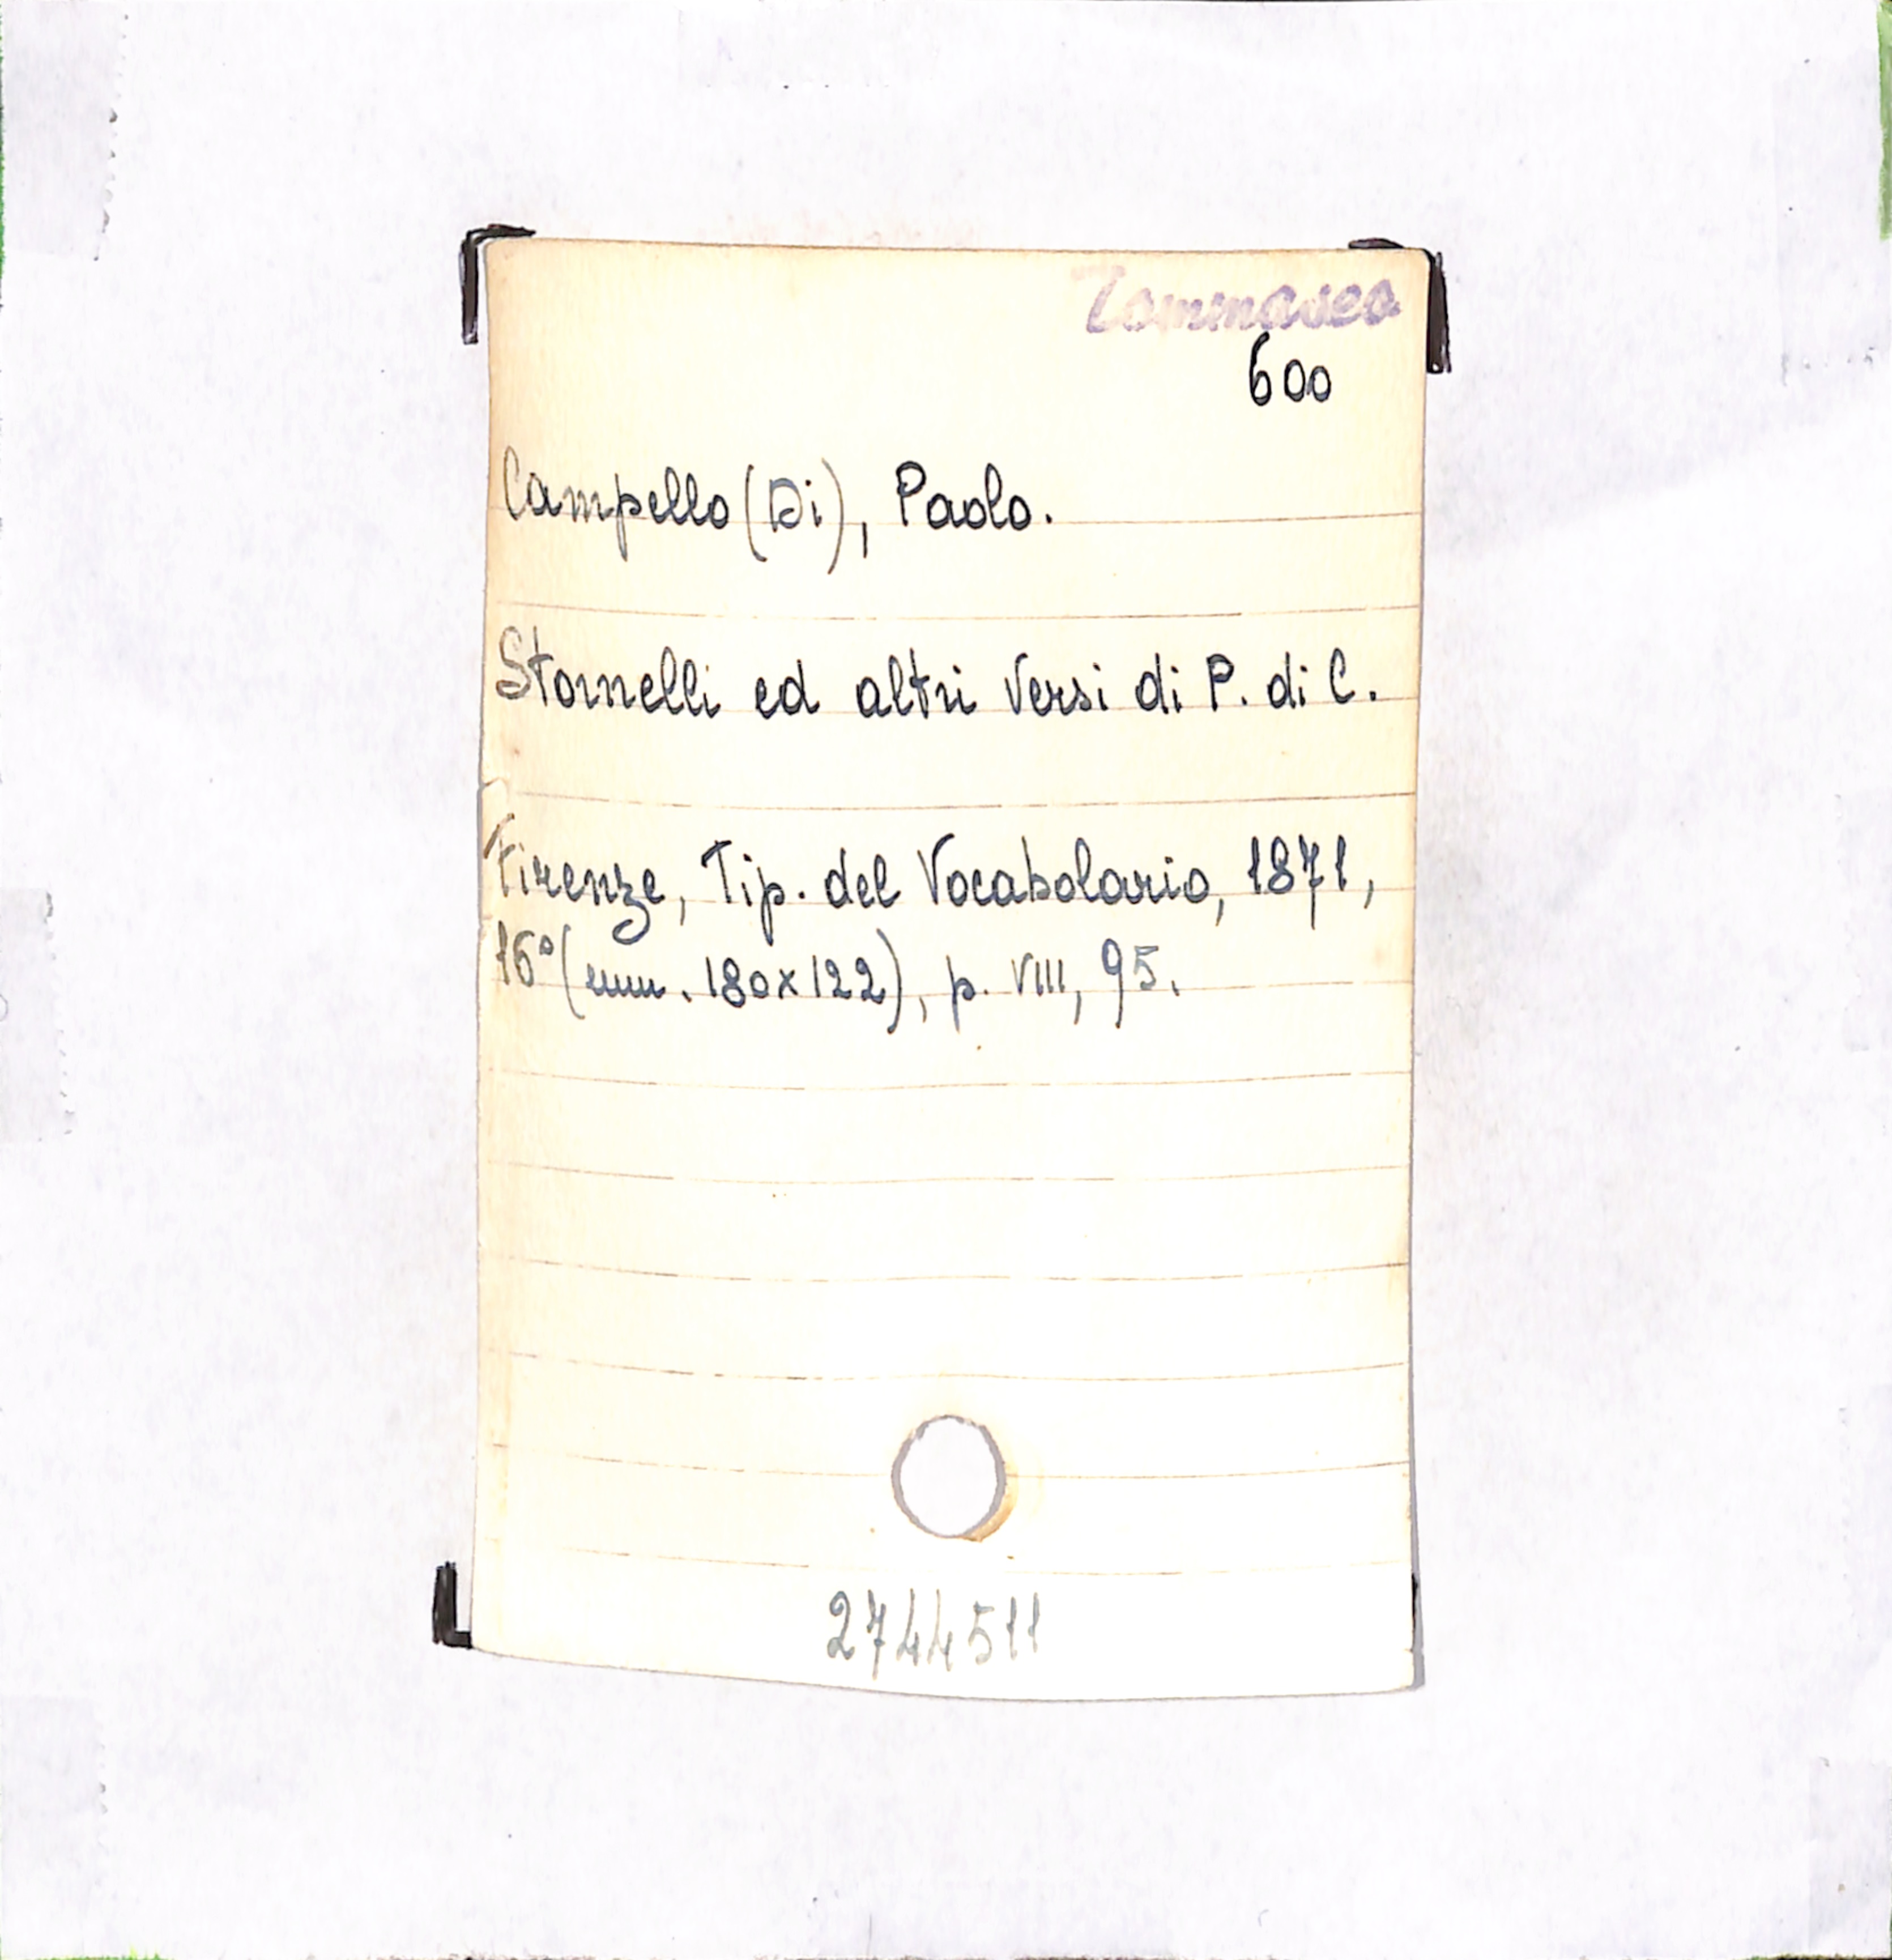 Tommaseo
600
Campello (Di), Paolo.
Stornelli ed altri versi di P. di C.
Firenze, Tip. del Vocabolario, 1871,
16° (mm. 180x122), p. VIII, 95.
2744511